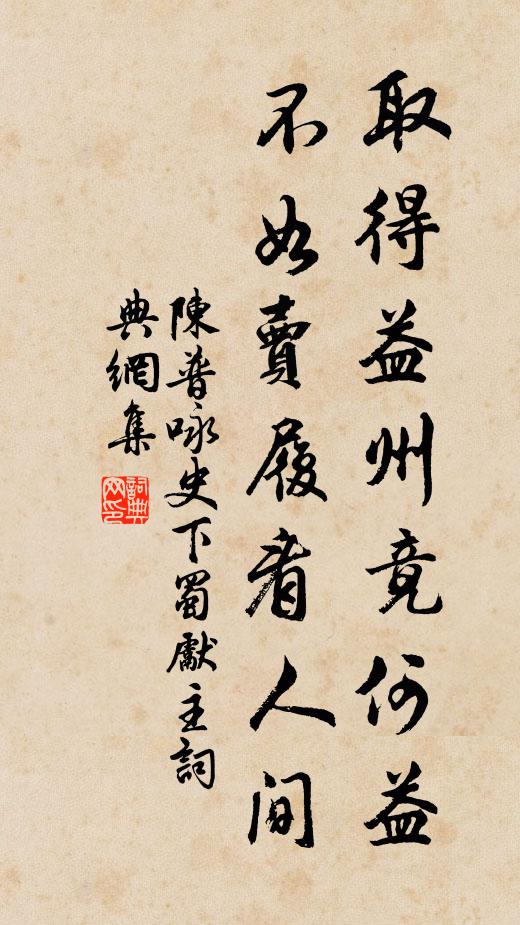 取得益州竟何益
不如賣履看人间
陳普咏史下蜀獻主詞
典網集
詞典網印